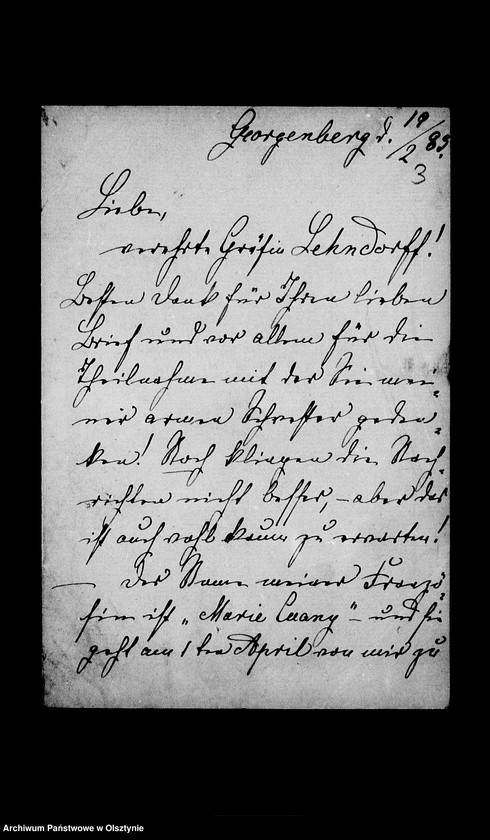 Georgenberg d. 19/2 83.
3
Liebe,
verehrte Gräfin Lehndorff!
Besten Dank für Ihren lieben
Brief und vor allem für die
Theilnahme mit der Sie mei-
ner armen Schwester geden-
ken! Noch klingen die Nach-
richten nicht besser, – aber das
ist auch wohl kaum zu erwarten!
— Der Name meiner Franzö-
sin ist „Marie Cuany" – und sie
geht am 1ten April von mir zu
Archiwum Państwowe w Olsztynie